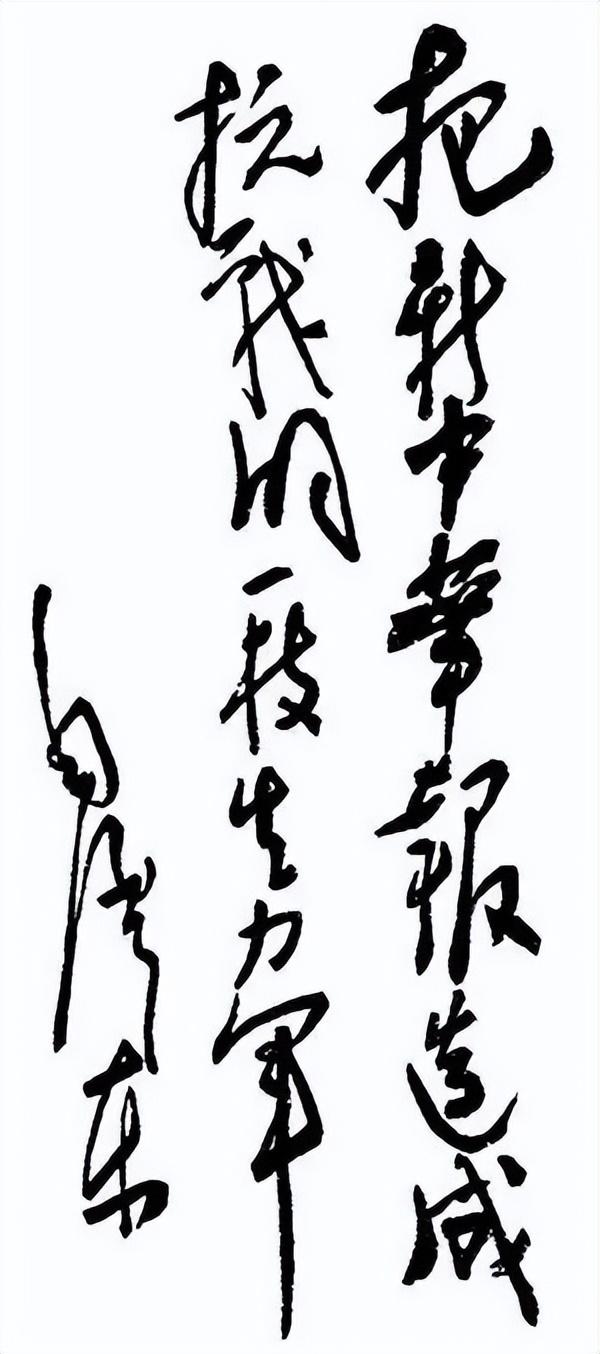 把新中華報造成
抗战的一枝生力軍
毛泽东